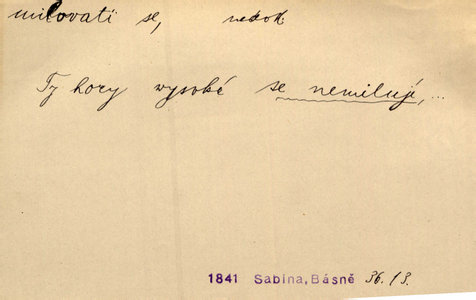 milovati se, nedok.
Ty hory vysoké se nemilují, ...
1841 Sabina, Básně 36./3.